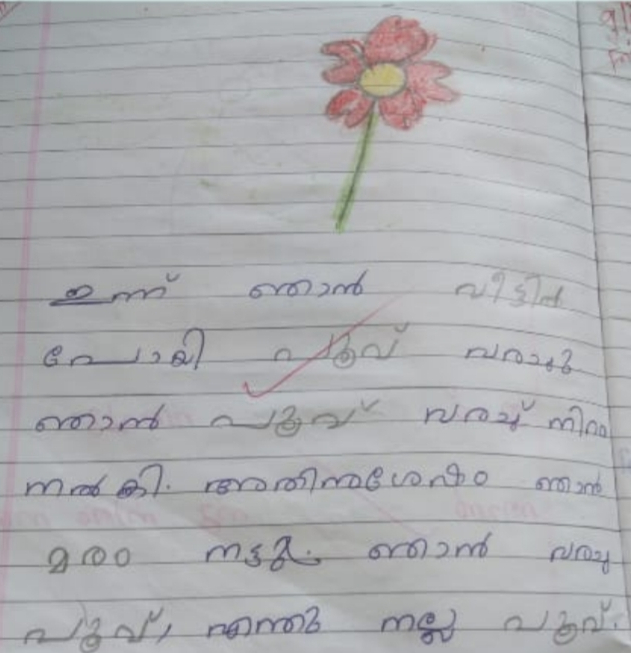 ഇന്ന് ഞാൻ വീട്ടിൽ
പോയി പൂവ് വരച്ചു
ഞാൻ പൂവ് വരച്ച് നിറം
നൽകി. അതിനുശേഷം ഞാൻ
മരം നട്ടു. ഞാൻ വരച്ച
പൂവ്, എന്തു നല്ല പൂവ്.